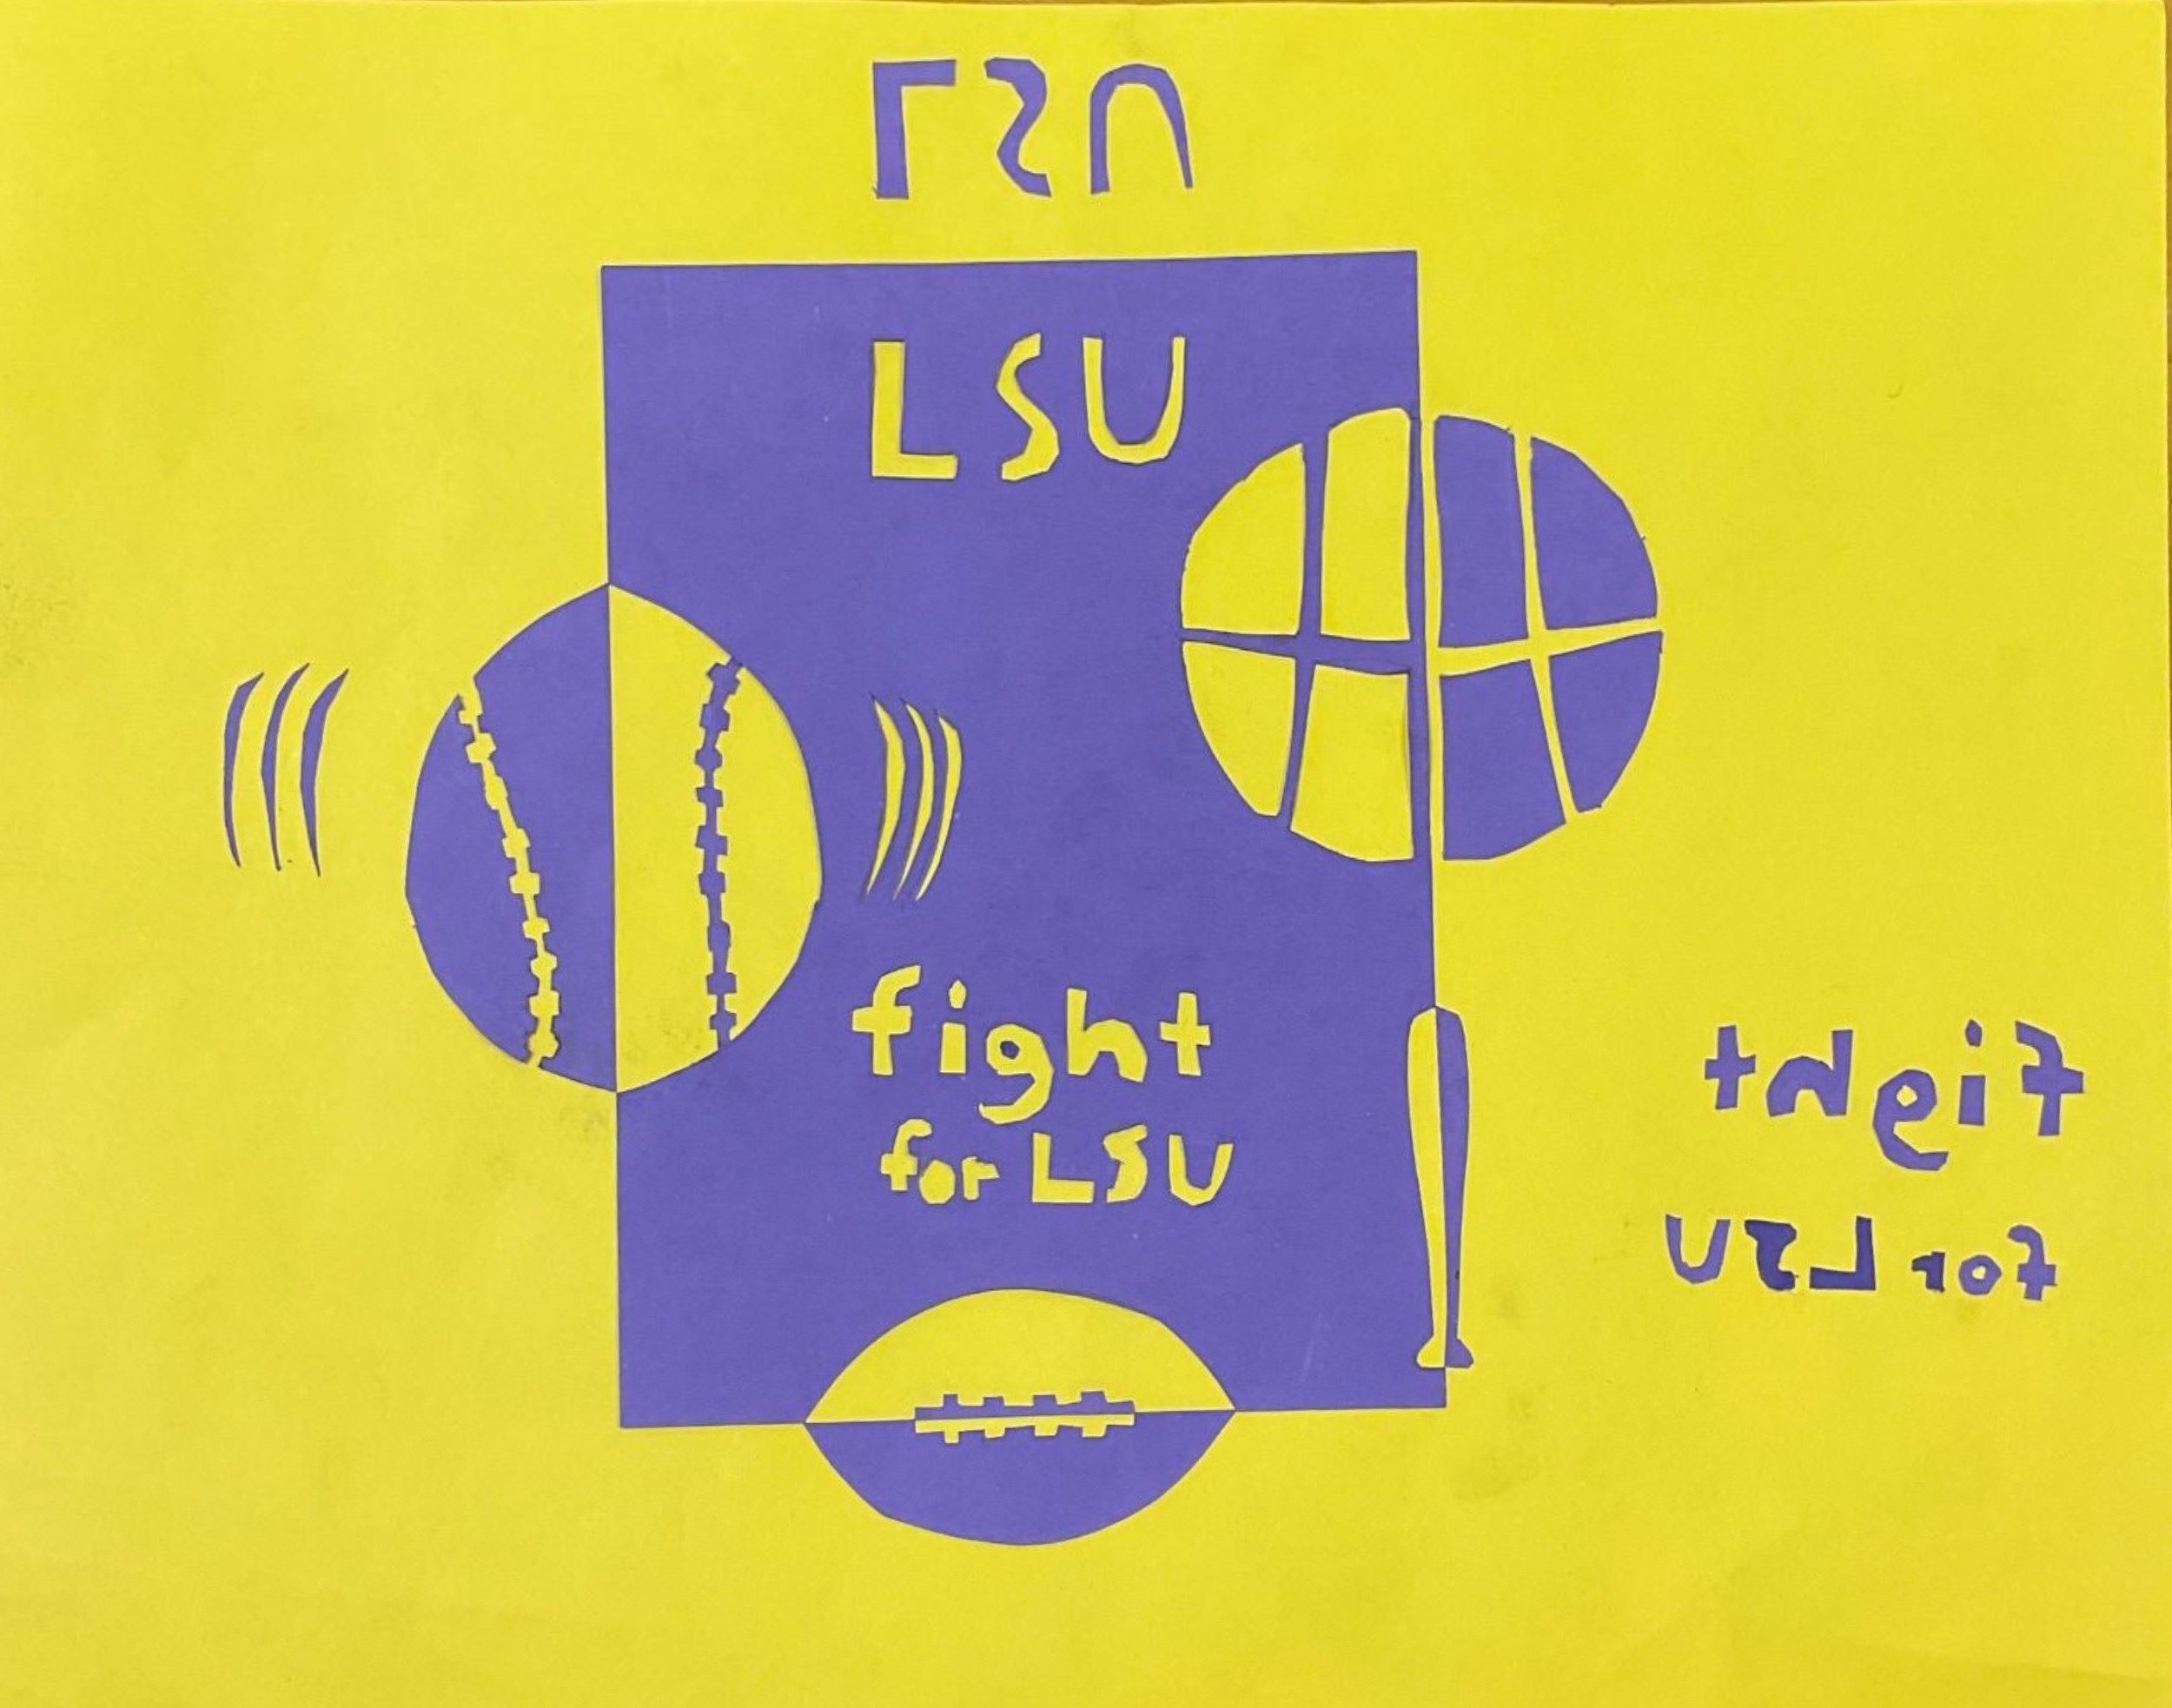 LSU
LSU
fight
for LSU
fight
for LSU